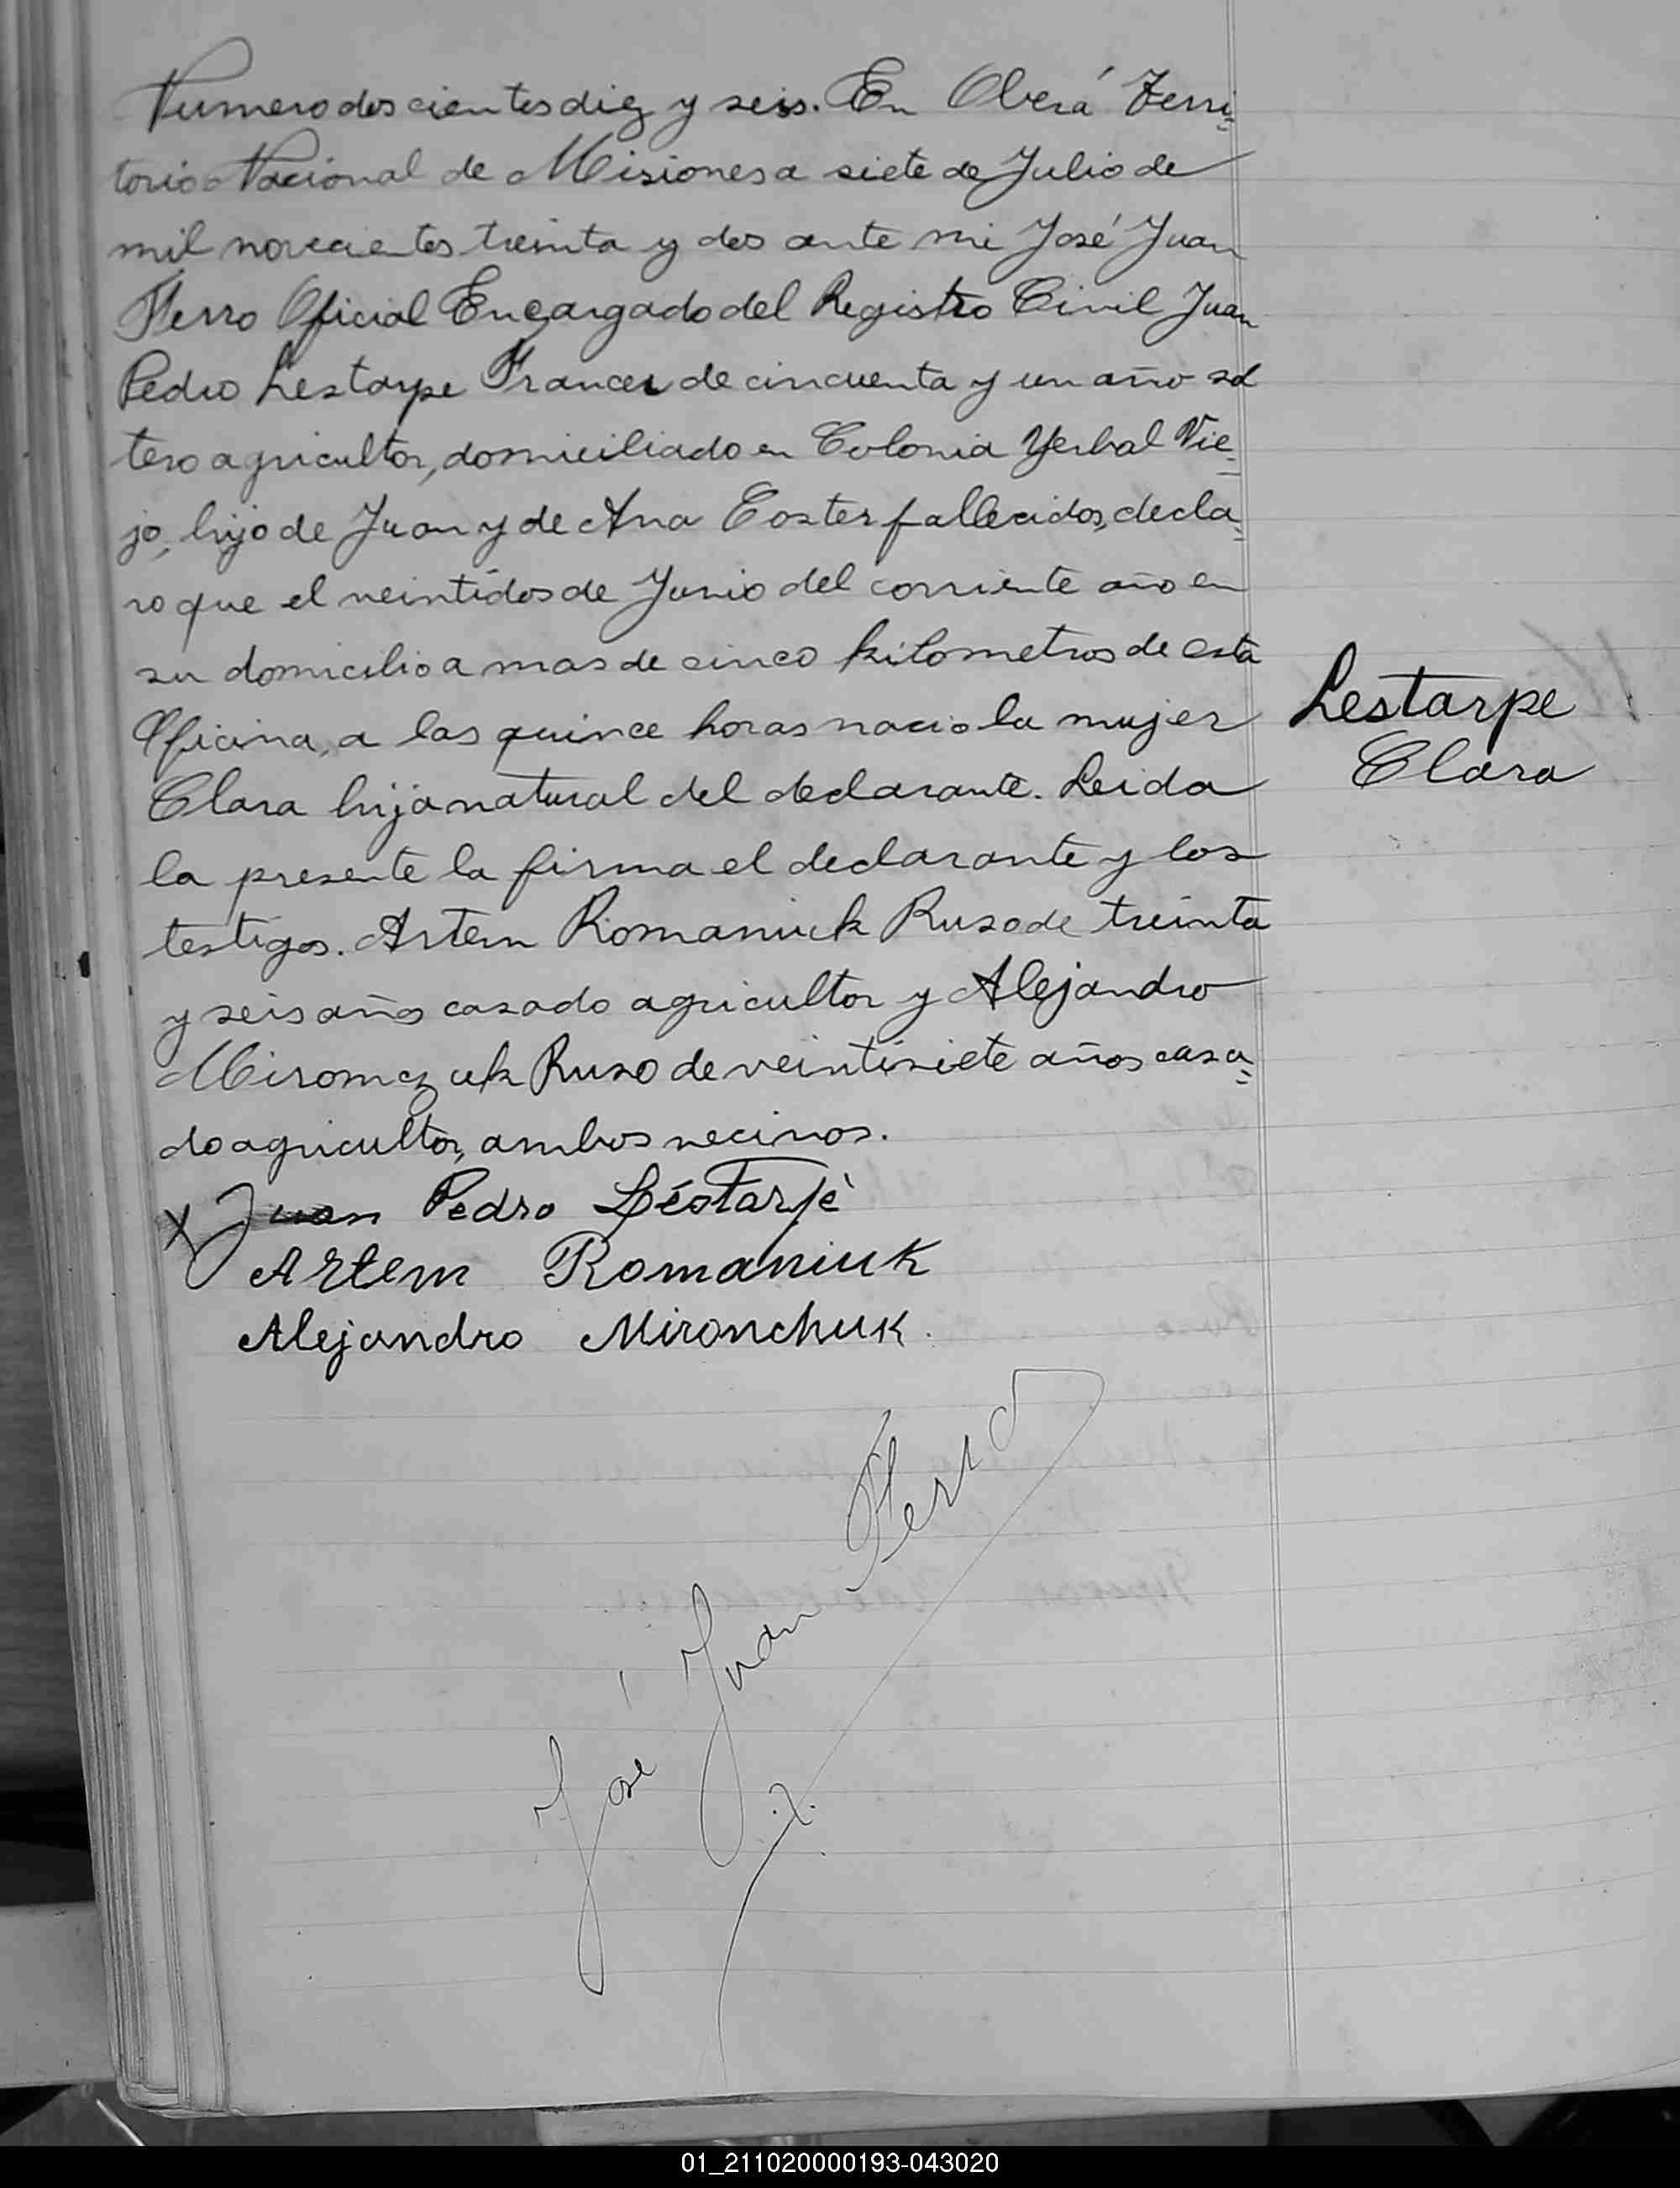 Numero dos cientos diez y seis. En Oberá Terri=
torio Nacional de Misiones a siete de Julio de
mil novecientos treinta y dos ante mi José Juan
Ferro Oficial Encargado del Registro Civil Juan
Pedro Lestarpe Frances de cincuenta y un año sol
tero agricultor, domiciliado en Colonia Yerbal Vie=
jo, hijo de Juan y de Ana Coster fallecidos, decla=
ro que el veintidos de Junio del corriente año en
su domicilio a mas de cinco kilometros de esta
Oficina, a las quince horas nacio la mujer
Clara hija natural del declarante. Leida
la presente la firma el declarante y los
testigos. Artem Romaniuk Ruso de treinta
y seis años casado agricultor y Alejandro
Miromczuk Ruso de veintisiete años casa=
do agricultor, ambos vecinos.
Lestarpe
Clara
X Juan Pedro Léstarpè
Artem Romaniuk
Alejandro Mironchuk.
José Juan Ferro
01_211020000193-043020